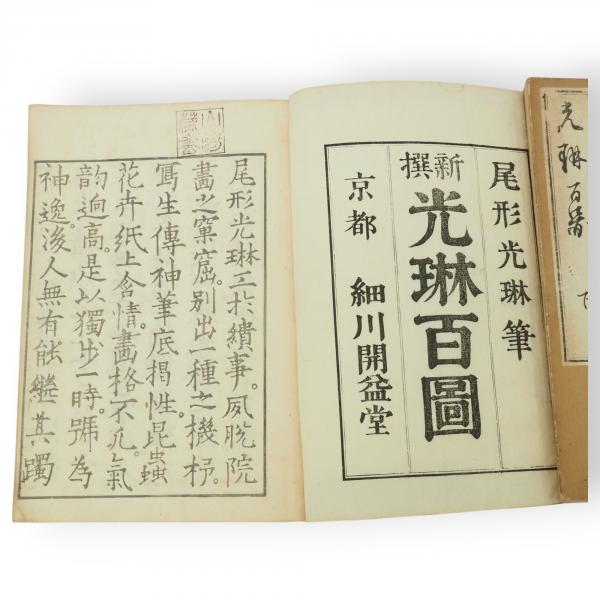 光琳百
尾形光琳筆
新撰
光琳百圖
京都 細川開益堂
尾形光琳工扵繢事。夙脫院
畵之窠窟。別出一種之機杼。
寫生傳神筆底揭性。昆蟲
花卉紙上含情。畵格不凢。氣
韵逈高。是以獨步一時。號為
神逸。後人無有能繼其躅